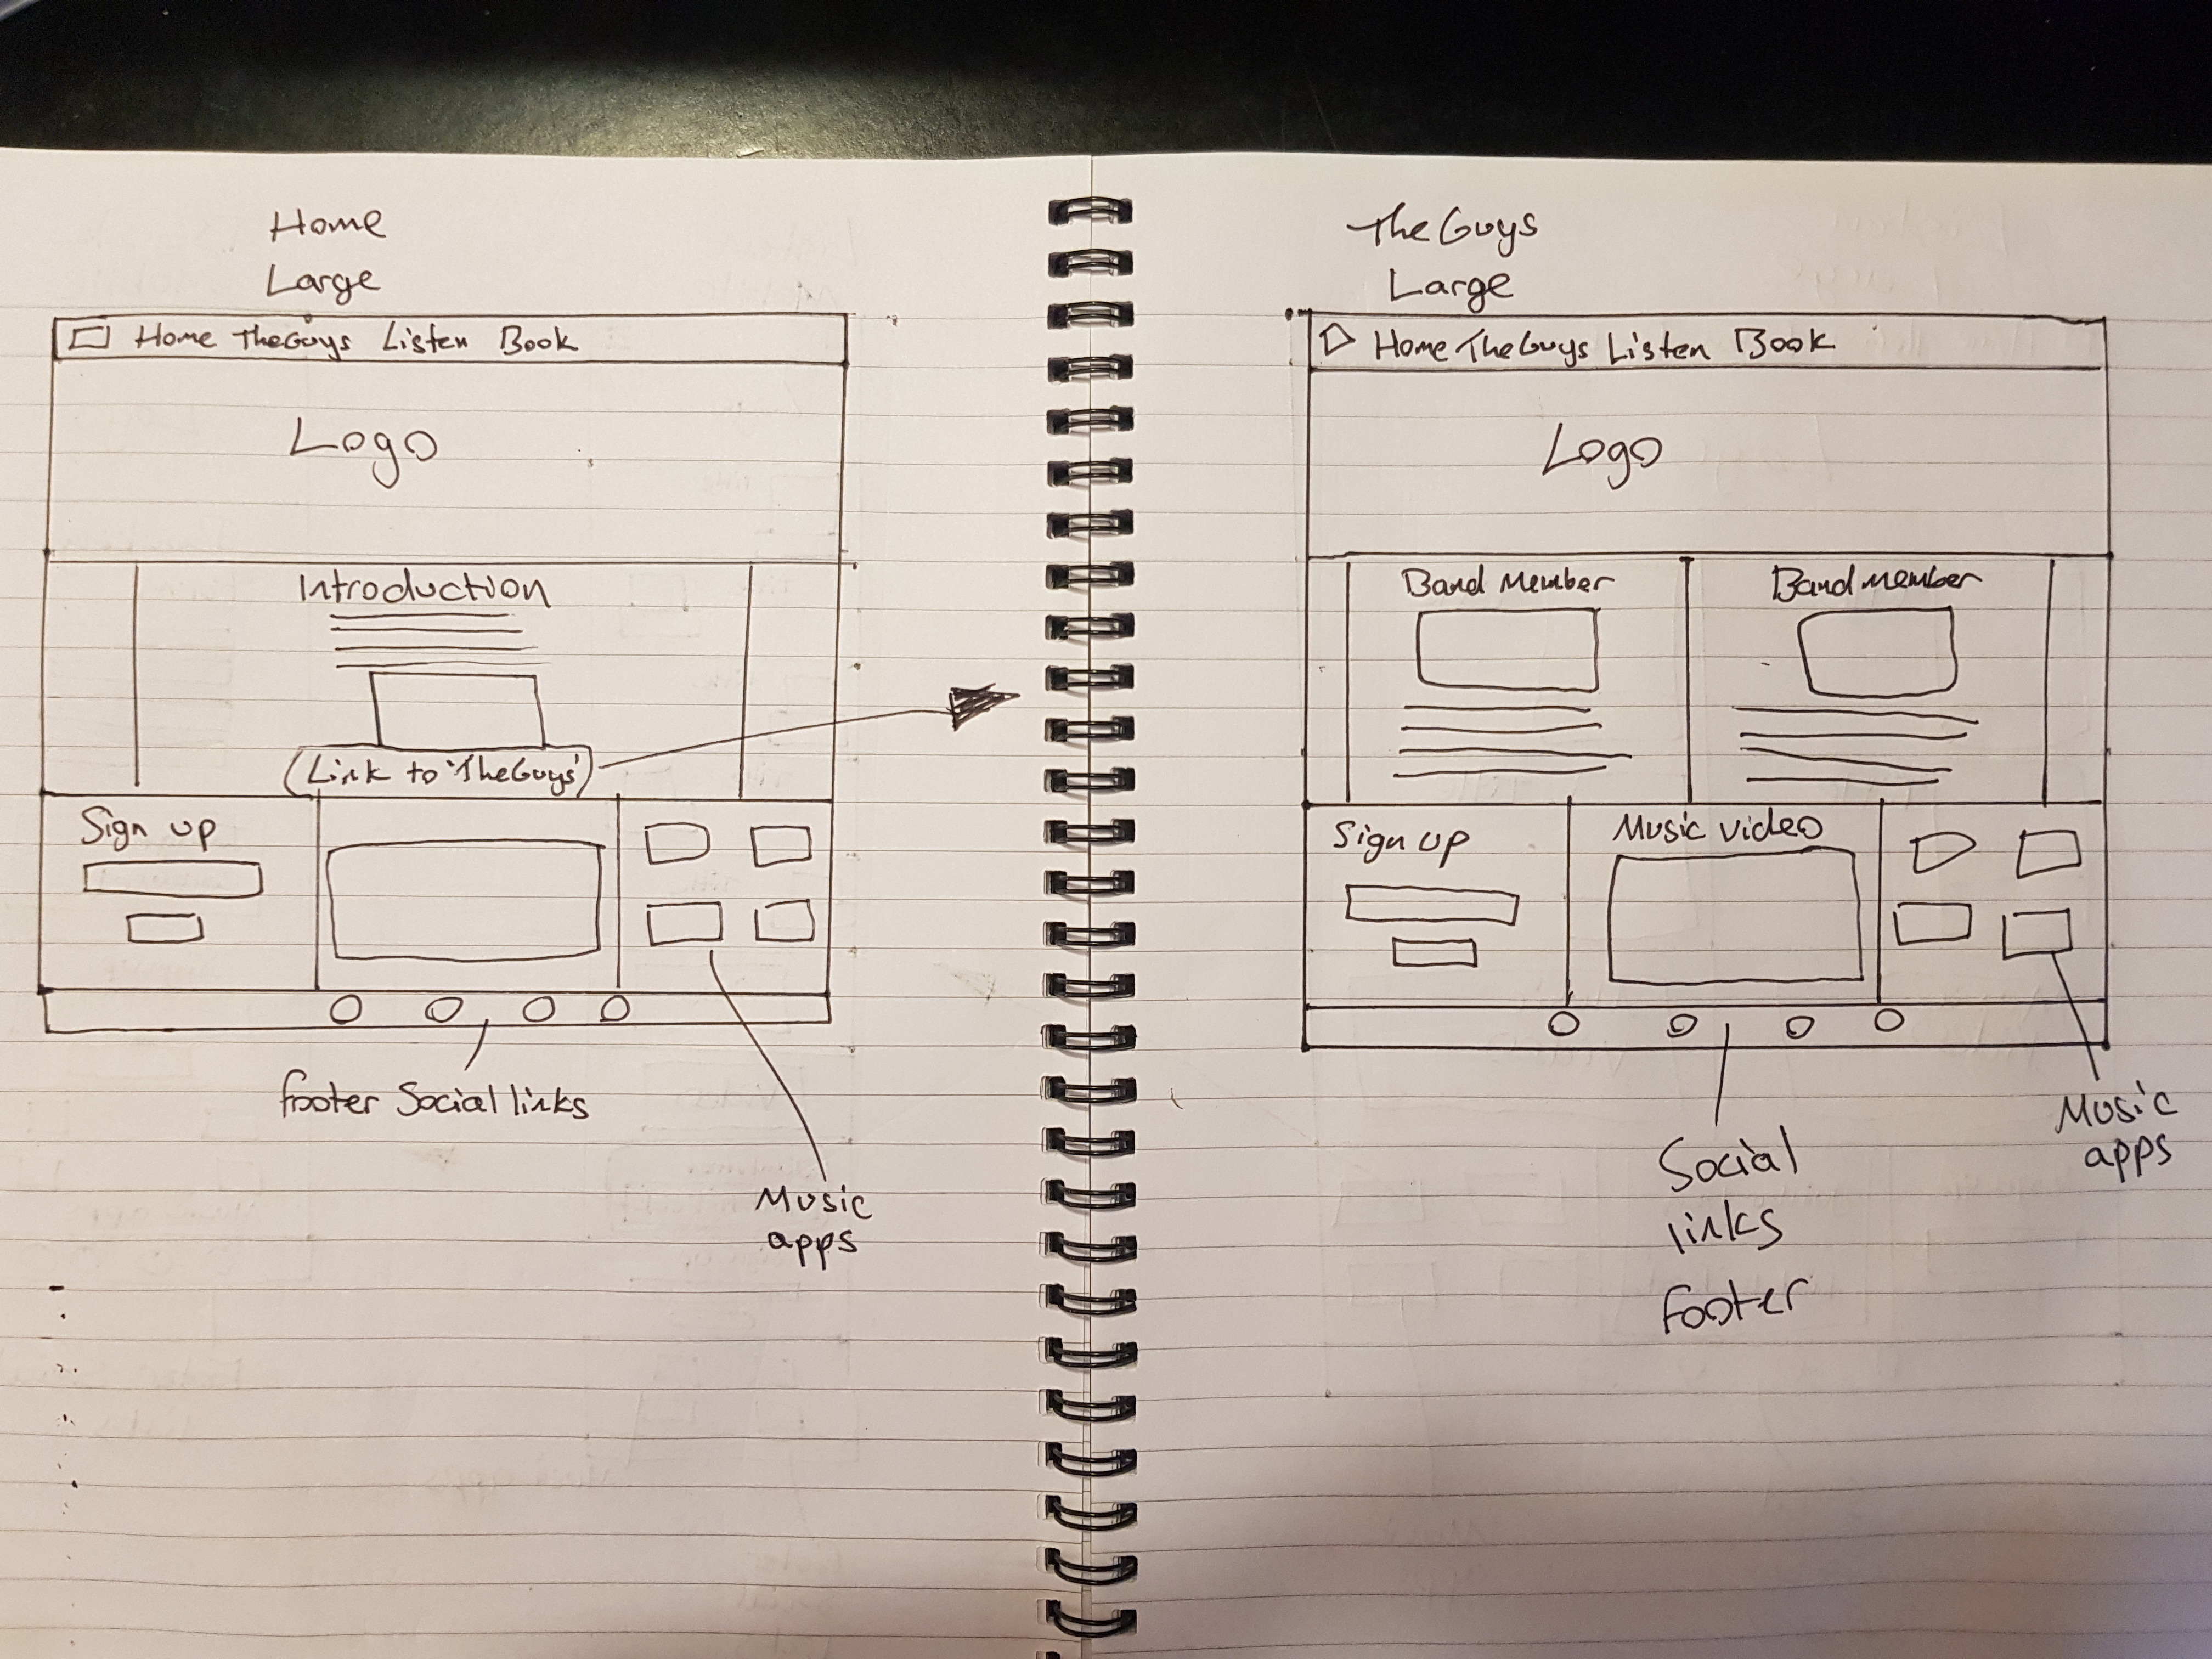 Home
Large
Home TheGuys Listen Book
Logo
Introduction
(Link to 'TheGuys')
Sign up
footer Social links
Music
apps
The Guys
Large
Home TheGuys Listen Book
Logo
Band Member
Band member
Sign up
Music video
Music
apps
Social
links
footer